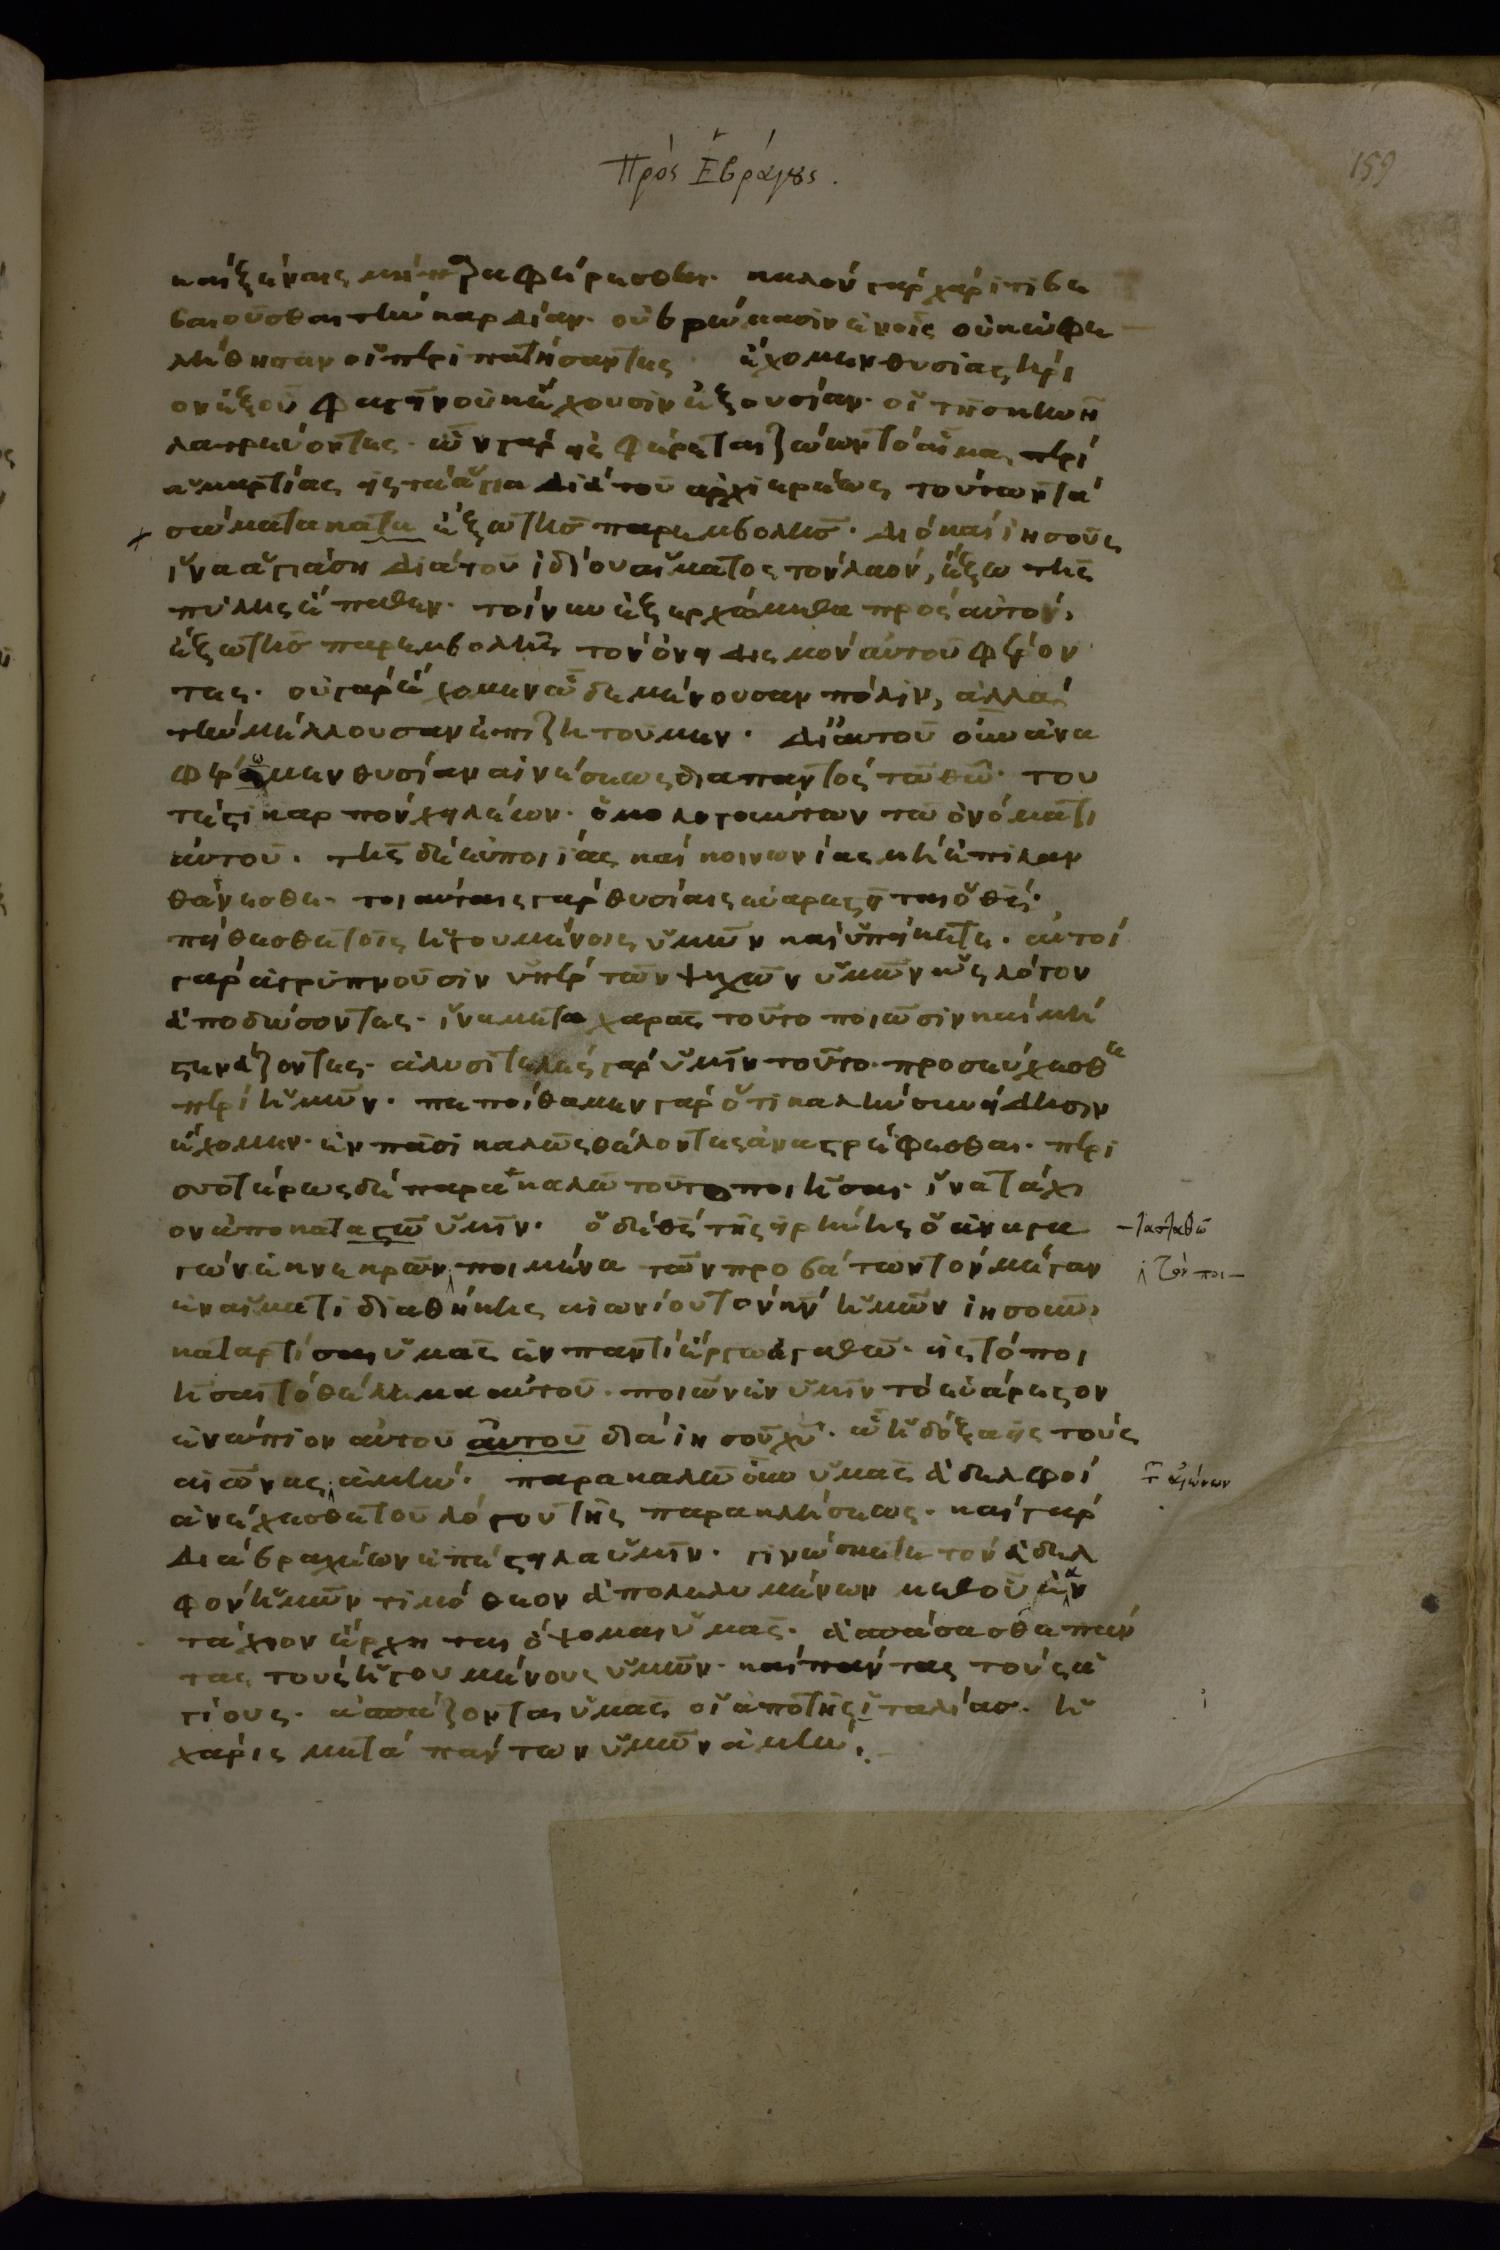 Πρὸς Ἑβραίους.
159
καὶ ξέναις μὴ παραφέρεσθαι· καλὸν γὰρ χάριτι βε
βαιοῦσθαι τὴν καρδίαν· οὐ βρώμασιν ἐν οἷς οὐκ ὠφε
λήθησαν οἱ περιπατήσαντες· ἔχομεν θυσιαστήρι
ον ἐξ οὗ φαγεῖν οὐκ ἔχουσιν ἐξουσίαν· οἱ τῆ σκηνῆ
λατρεύοντες· ὧν γὰρ εἰσφέρεται ζώων τὸ αἷμα, περὶ
ἁμαρτίας εἰς τὰ ἅγια διὰ τοῦ ἀρχιερέως τούτων τὰ
σώματα κατα ἔξω τῆς παρεμβολῆς· διὸ καὶ ἰησοῦς
ἵνα ἁγιάση διὰ τοῦ ἰδίου αἵματος τὸν λαόν, ἔξω τῆς
πύλης ἔπαθεν· τοίνυν ἐξερχώμεθα πρὸς αὐτόν,
ἔξω τῆς παρεμβολῆς τὸν ὀνειδισμὸν αὐτοῦ φέρον
τες· οὐ γὰρ ἔχομεν ὧδε μένουσαν πόλιν, ἀλλὰ
τὴν μέλλουσαν ἐπιζητοῦμεν· δι' αὐτοῦ οὖν ἀνα
φέρωμεν θυσίαν αἰνέσεως διαπαντὸς τῶ θῶ· του
τέστι καρπὸν χειλέων· ὁμολογούντων τῶ ὀνόματι
αὐτοῦ· τῆς δὲ εὐποιίας καὶ κοινωνίας μὴ ἐπιλαν
θάνεσθε· τοιαύταις γὰρ θυσίαις εὐαρεστεῖται ὁ θς·
πείθεσθε τοῖς ἡγουμένοις ὑμῶν καὶ ὑπείκετε· αὐτοὶ
γὰρ ἀγρυπνοῦσιν ὑπὲρ τῶν ψυχῶν ὑμῶν ὡς λόγον
ἀποδώσοντες· ἵνα μετα χαρᾶς τοῦτο ποιῶσιν καὶ μὴ
στενάζοντες· ἀλυσιτελὲς γὰρ ὑμῖν τοῦτο· προσεύχεσθε
περὶ ἡμῶν· πεποίθαμεν γὰρ ὅτι καλὴν συνείδησιν
ἔχομεν· ἐν πᾶσι καλῶς θέλοντες ἀναστρέφεσθαι· περι
σσοτέρως δὲ παρακαλῶ τοῦτο ποιῆσαι· ἵνα τάχι
ον ἀποκαταστῶ ὑμῖν· ὁ δὲ θς τῆς εἰρήνης ὁ ἀναγα
—τασταθῶ
γὼν ἐκ νεκρῶν, ποιμένα τῶν προβάτων τὸν μέγαν
τὸν ποι—
ἐν αἵματι διαθήκης αἰωνίου τὸν κν ἡμῶν ἰησοῦν,
καταρτίσαι ὑμᾶς ἐν παντὶ ἔργω ἀγαθῶ· εἰς τὸ ποι
ῆσαι τὸ θέλημα αὐτοῦ· ποιῶν ἐν ὑμῖν τὸ εὐάρεστον
ἐνώπιον αὐτοῦ αὐτοῦ διὰ ἰησοῦ χυ· ὧ ἡ δόξα εἰς τοὺς
αἰῶνας, ἀμήν· παρακαλῶ οὖν ὑμᾶς ἀδελφοὶ
τ αἰώνων
ἀνέχεσθε τοῦ λόγου τῆς παρακλήσεως· καὶ γὰρ
διὰ βραχέων ἐπέστειλα ὑμῖν· γινώσκετε τὸν ἀδελ
φὸν ἡμῶν τιμόθεον ἀπολελυμένων μεθ οὗ ἐὰν
τάχιον ἔρχηται ὄψομαι ὑμᾶς· ἀσπάσασθε πάν
τας τοὺς ἡγουμένους ὑμῶν· καὶ πάντας τοὺς ἁ
γίους· ἀσπάζονται ὑμᾶς οἱ ἀπὸ τῆς ἰταλίας· ἡ
χάρις μετὰ πάντων ὑμῶν ἀμήν·